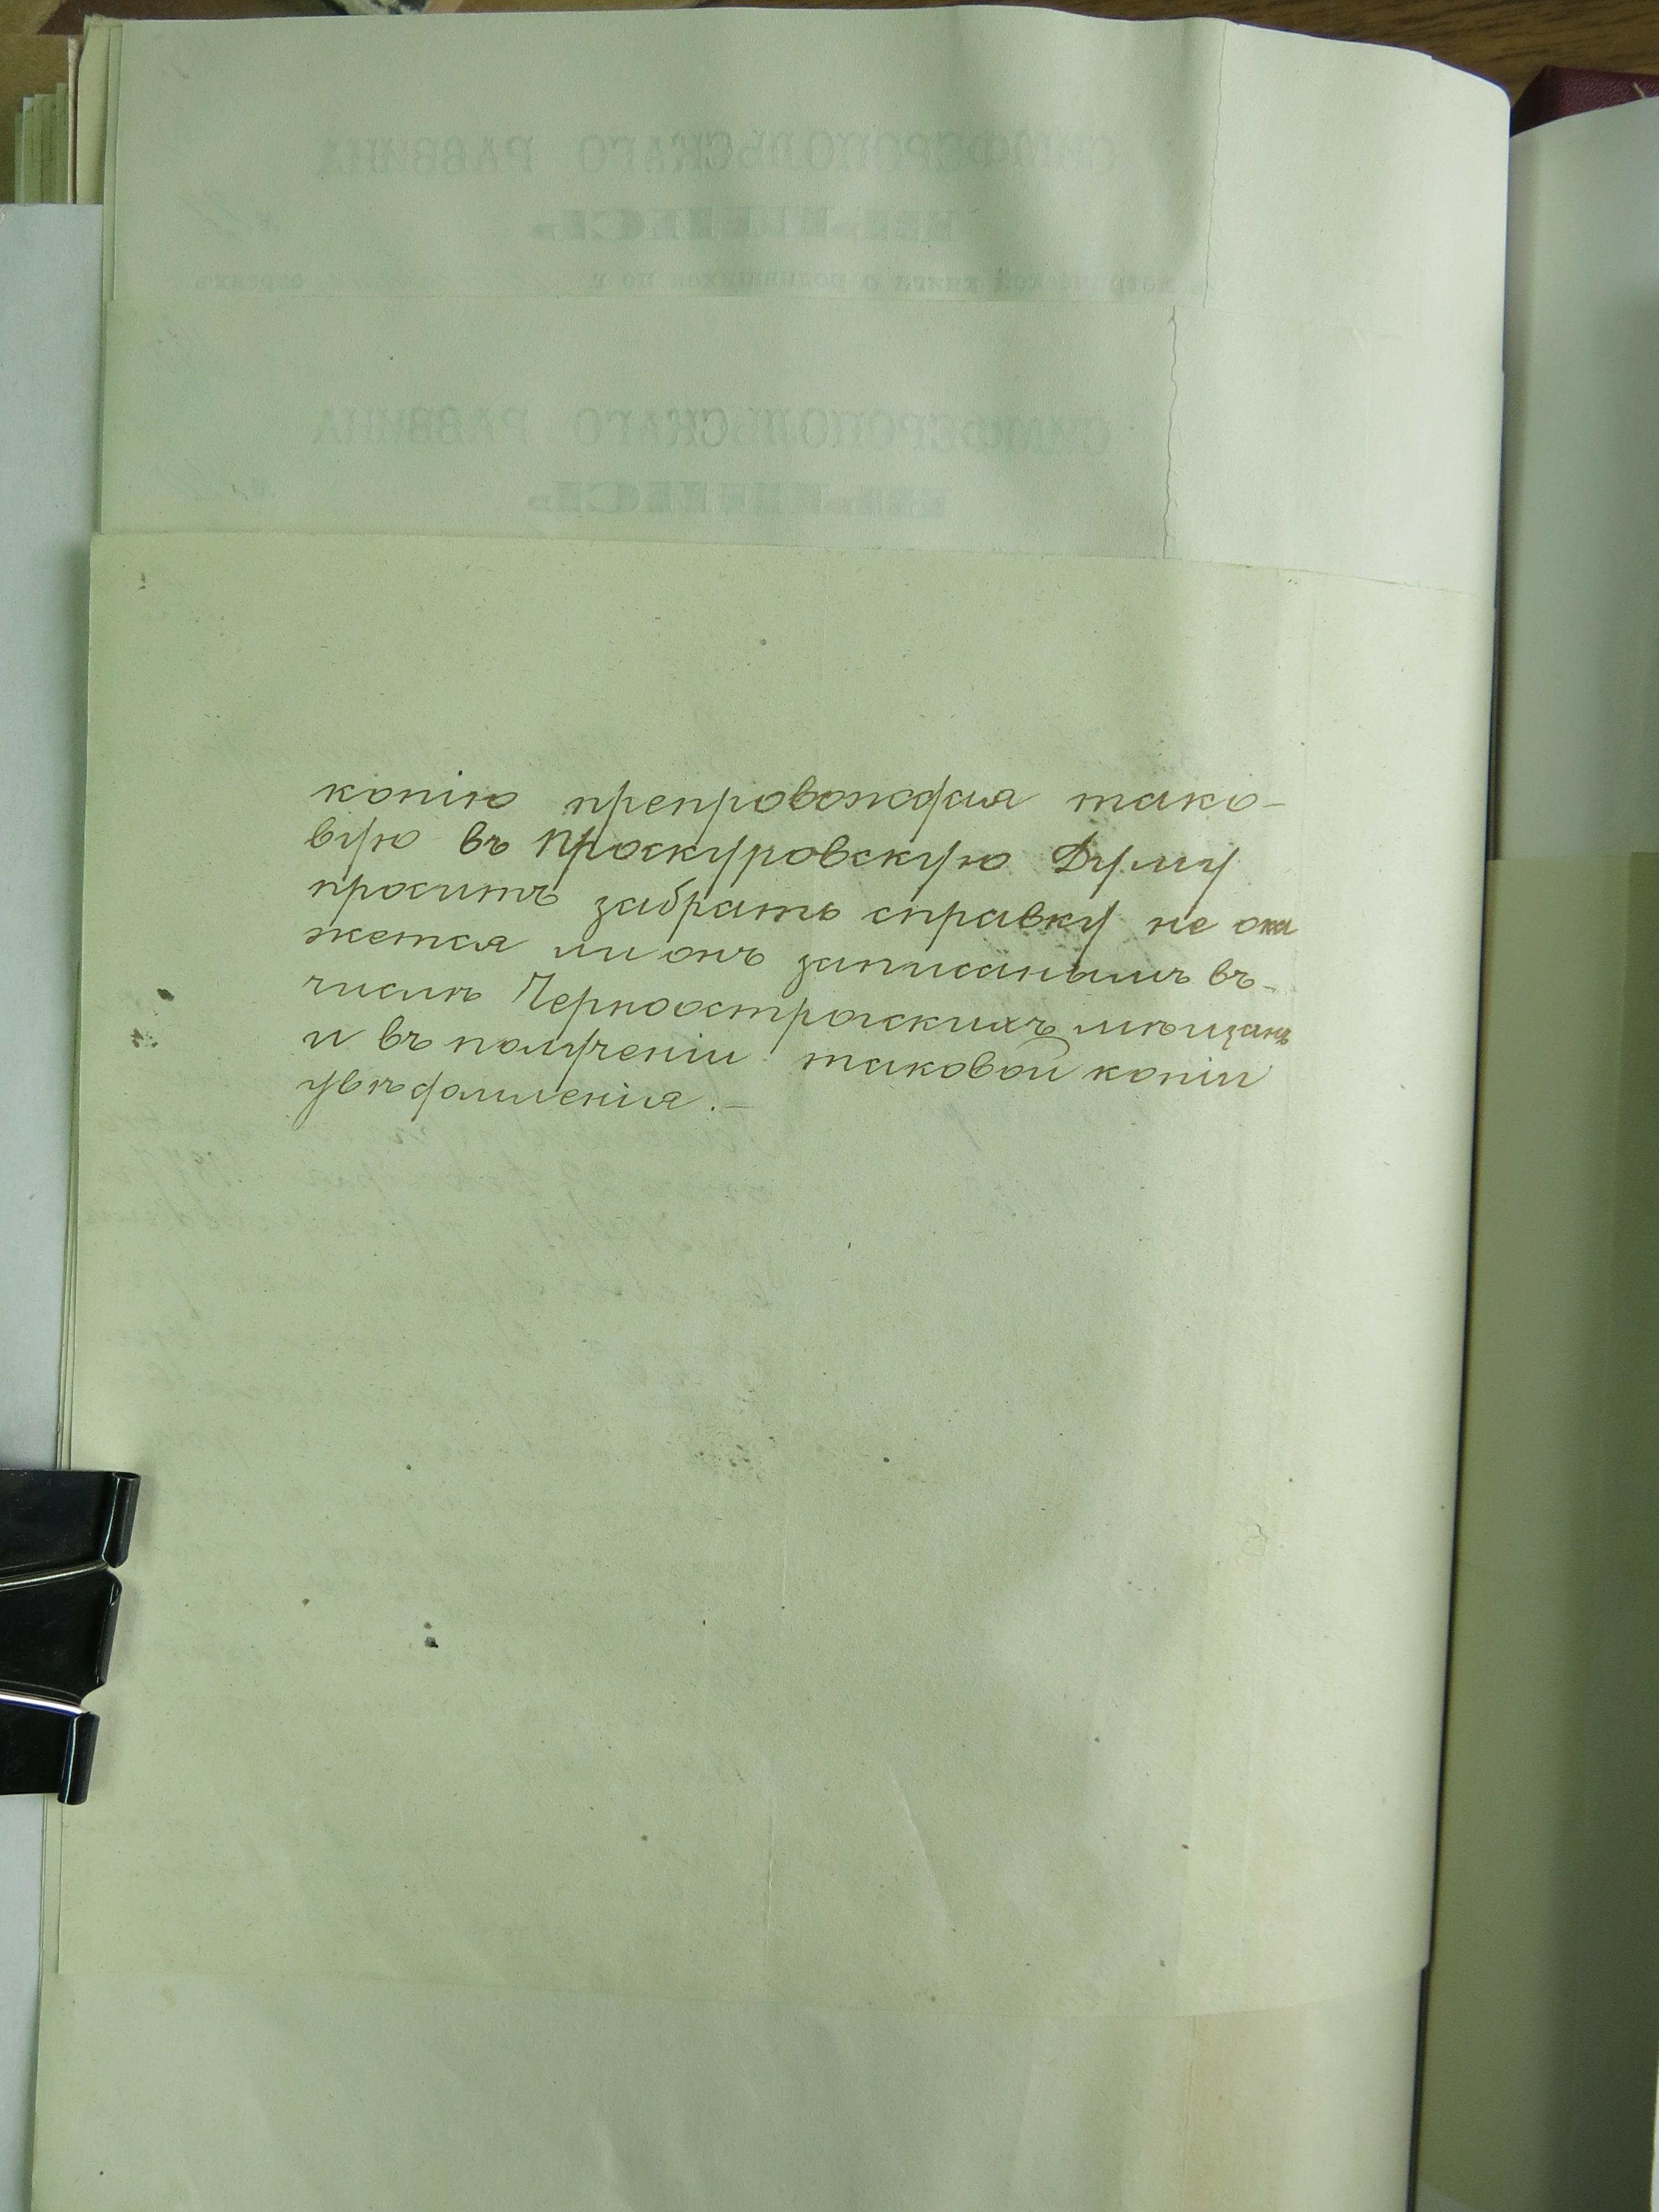 СИМФЕРОПОЛЬСКАГО РАВВИНА
ВЫПИСЬ
метрической книги о родившихся по г. евреяхъ
СИМФЕРОПОЛЬСКАГО РАВВИНА
ВЫПИСЬ
копію препровождая тако-
вую въ Проскуровскую Думу
проситъ забрать справку не ока
жется ли онъ записанымъ въ-
числѣ Черноостройскихъ мѣщанъ
и въ полученіи таковой копіи
увѣдомленія.-